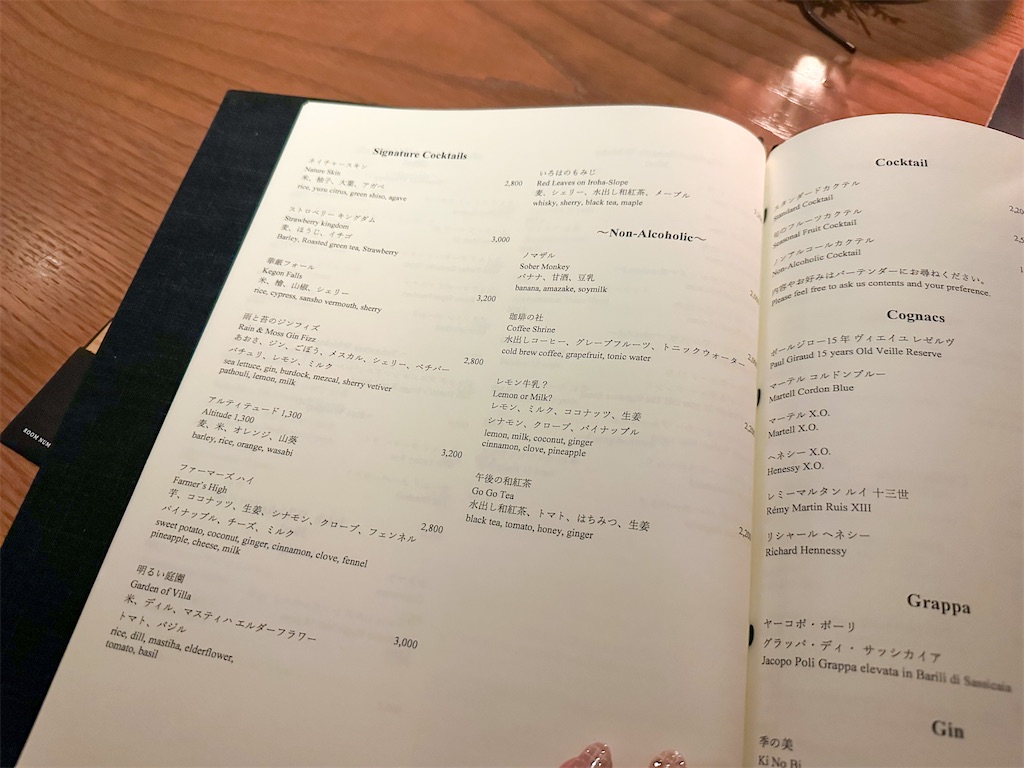 Signature Cocktails
ネイチャースキン
Nature Skin
米、柚子、大葉、アガベ
rice, yuzu citrus, green shiso, agave
2,800
ストロベリー キングダム
Strawberry kingdom
麦、ほうじ、イチゴ
Barley, Roasted green tea, Strawberry
3,000
華厳フォール
Kegon Falls
米、檜、山椒、シェリー
rice, cypress, sansho vermouth, sherry
3,200
雨と苔のジンフィズ
Rain & Moss Gin Fizz
あおさ、ジン、ごぼう、メスカル、シェリー、ベチバー
パチュリ、レモン、ミルク
sea lettuce, gin, burdock, mezcal, sherry vetiver
pathouli, lemon, milk
2,800
アルティテュード 1,300
Altitude 1,300
麦、米、オレンジ、山葵
barley, rice, orange, wasabi
3,200
ファーマーズ ハイ
Farmer's High
芋、ココナッツ、生姜、シナモン、クローブ、フェンネル
パイナップル、チーズ、ミルク
sweet potato, coconut, ginger, cinnamon, clove, fennel
pineapple, cheese, milk
2,800
明るい庭園
Garden of Villa
米、ディル、マスティハ エルダーフラワー
トマト、バジル
rice, dill, mastiha, elderflower,
tomato, basil
3,000
いろはのもみじ
Red Leaves on Iroha-Slope
麦、シェリー、水出し和紅茶、メープル
whisky, sherry, black tea, maple
～Non-Alcoholic～
ノマザル
Sober Monkey
バナナ、甘酒、豆乳
banana, amazake, soymilk
珈琲の社
Coffee Shrine
水出しコーヒー、グレープフルーツ、トニックウォーター
cold brew coffee, grapefruit, tonic water
レモン牛乳？
Lemon or Milk?
レモン、ミルク、ココナッツ、生姜
シナモン、クローブ、パイナップル
lemon, milk, coconut, ginger
cinnamon, clove, pineapple
午後の和紅茶
Go Go Tea
水出し和紅茶、トマト、はちみつ、生姜
black tea, tomato, honey, ginger
Cocktail
スタンダードカクテル
Standard Cocktail
旬のフルーツカクテル
Seasonal Fruit Cocktail
ノンアルコールカクテル
Non-Alcoholic Cocktail
内容やお好みはバーテンダーにお尋ねください。
Please feel free to ask us contents and your preference.
Cognacs
ポールジロー15 年 ヴィエイユ レゼルヴ
Paul Giraud 15 years Old Veille Reserve
マーテル コルドンブルー
Martell Cordon Blue
マーテル X.O.
Martell X.O.
ヘネシー X.O.
Henessy X.O.
レミーマルタン ルイ 十三世
Rémy Martin Ruis XIII
リシャール ヘネシー
Richard Hennessy
Grappa
ヤーコポ・ポーリ
グラッパ・ディ・ サッシカイア
Jacopo Poli Grappa elevata in Barili di Sassicaia
Gin
季の美
Ki No Bi